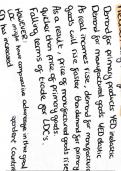 Demand for primary products YED inelastic
Demand for manufactured goods YED elastic
As real incomes rise, demand for manufactured
goods will rise faster than demand for primary
As a result, price of manufactured goods rise
quicker than price of primary goods
Falling terms of trade for LDC's.
HOWEVER:
LDC might have comparative advantage in the good
has increased